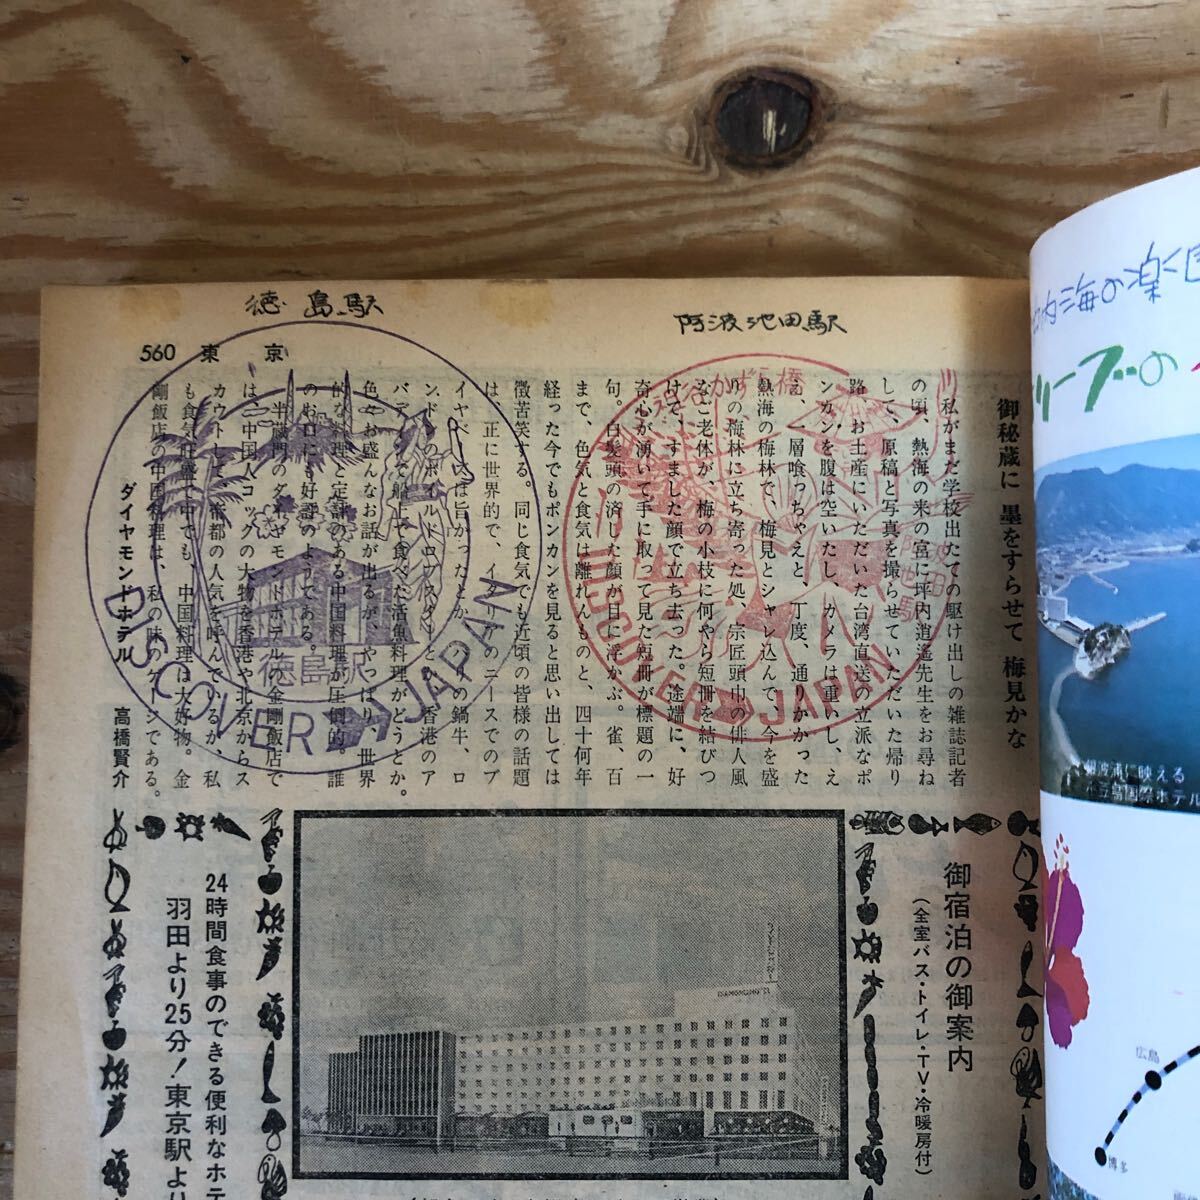 徳島駅
阿波池田駅
560 東京
御秘蔵に 墨をすらせて 梅見かな
私がまだ学校出たての駆け出しの雑誌記者
の頃、熱海の来の宮に坪内逍遙先生をお尋ね
して、原稿と写真を撮らせていただいた帰り
路、お土産にいただいた台湾直送の立派なポ
ンカンを腹は空いたし、カメラは重いし、え
え、一層喰っちゃえと、丁度、通りかかった
熱海の梅林で、梅見とシャレ込んで、今を盛
りの梅林に立ち寄った処、宗匠頭巾の俳人風
なご老体が、梅の小枝に何やら短冊を結びつ
けて、すました顔で立ち去った。途端に、好
奇心が湧いて手に取って見た短冊が標題の一
句。白髪頭の済した顔が目に浮かぶ。雀、百
まで、色気と食気は離れんものと、四十何年
経った今でもポンカンを見ると思い出しては
微苦笑する。同じ食気でも近頃の皆様の話題
は、正に世界的で、イタリアのニースでのブ
イヤベースは旨かったとか、パリの鍋牛、ロ
ンドンのボイルドロブスターとか、香港のア
バデンで船上で食べた活魚料理がどうとか。
色々お盛んなお話が出るが、やっぱり、世界
的な料理と定評のある中国料理が圧倒的。誰
のお口にも好評のようである。
半蔵門のダイヤモンドホテルの金剛飯店で
は、中国人コックの大物を香港や北京からス
カウトして、帝都の人気を呼んでいるが、私
も食気旺盛で中でも、中国料理は大好物。金
剛飯店の中国料理は、私の味のゲージンである。
ダイヤモンドホテル
高橋賢介
徳島駅
DISCOVER JAPAN
かずら橋
DISCOVER JAPAN
御宿泊の御案内
(全室バス・トイレ・TV・冷暖房付)
24時間食事のできる便利なホテ
羽田より25分!東京駅より
内海の楽
リーブの
に映える
小豆島国際ホテル
広島
博多